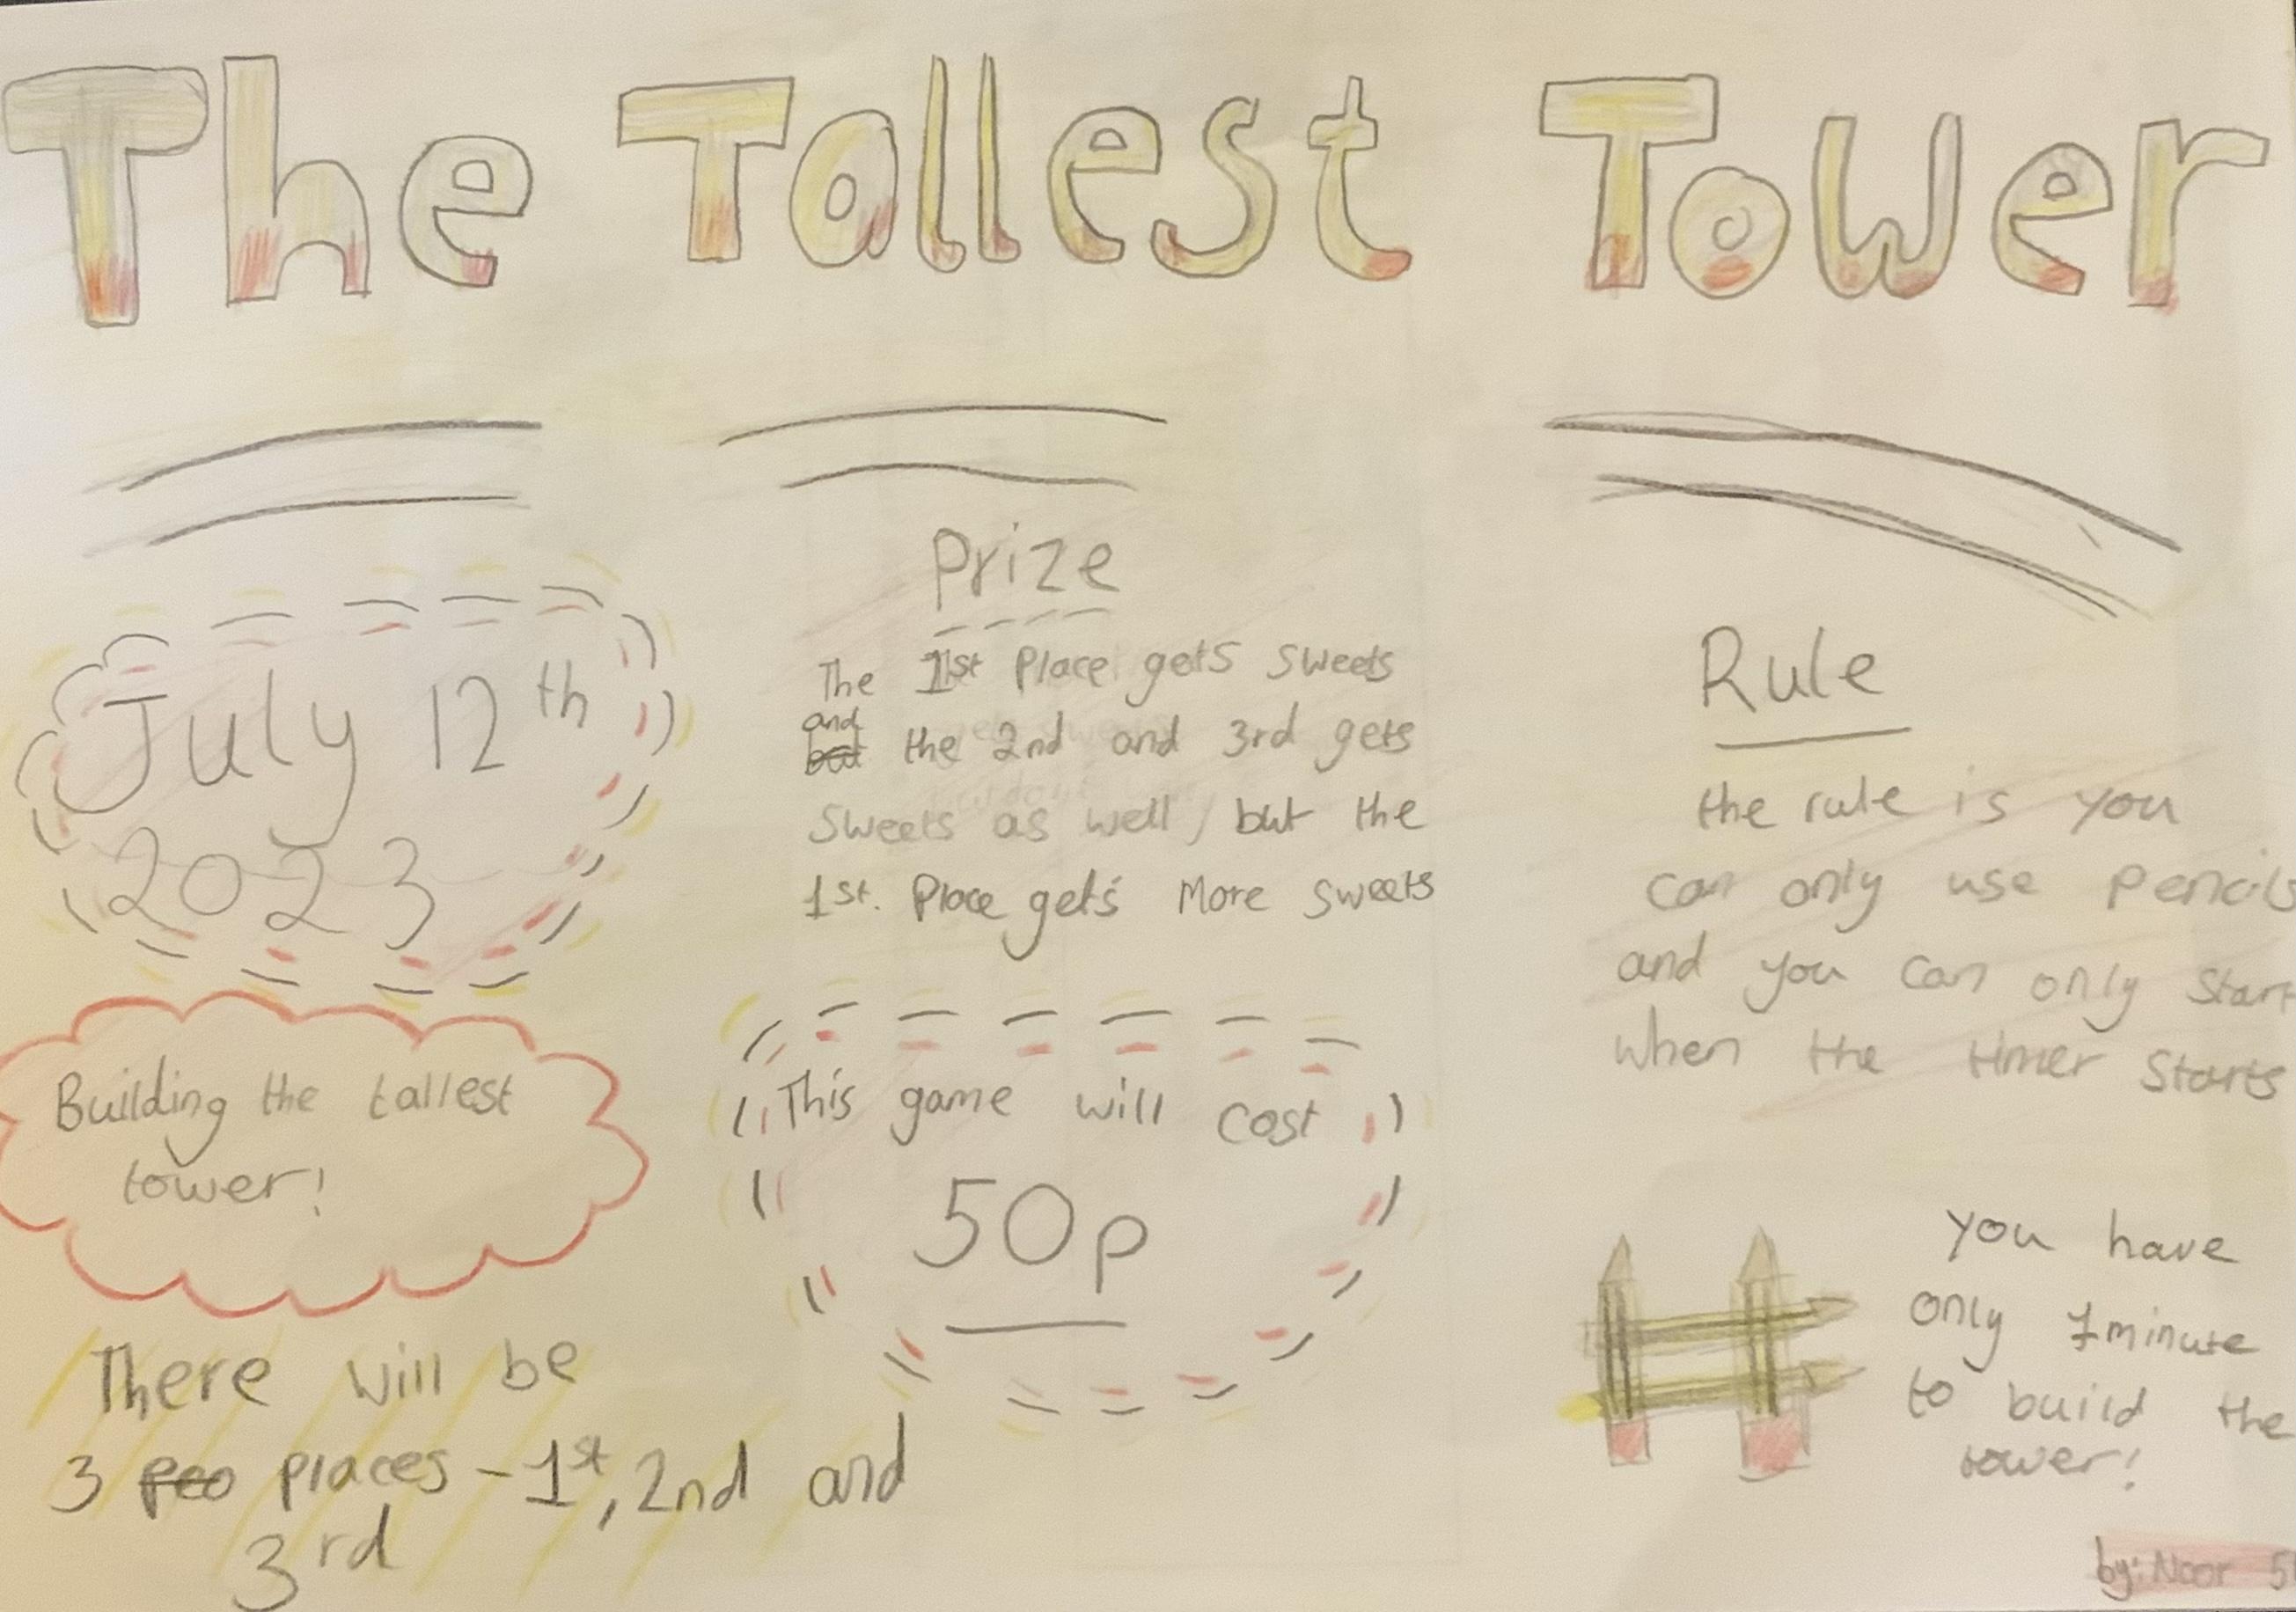 The Tallest Tower
July 12th
2023
Building the tallest
tower!
There will be
3 places - 1st, 2nd and
3rd
Prize
The 1st Place gets sweets
and
the 2nd and 3rd gets
sweets as well, but the
1st. Place gets More sweets
This game will cost
50p
Rule
the rule is you
can only use pencils
and you can only start
when the timer starts
you have
only 1minute
to build the
tower!
by: Noor